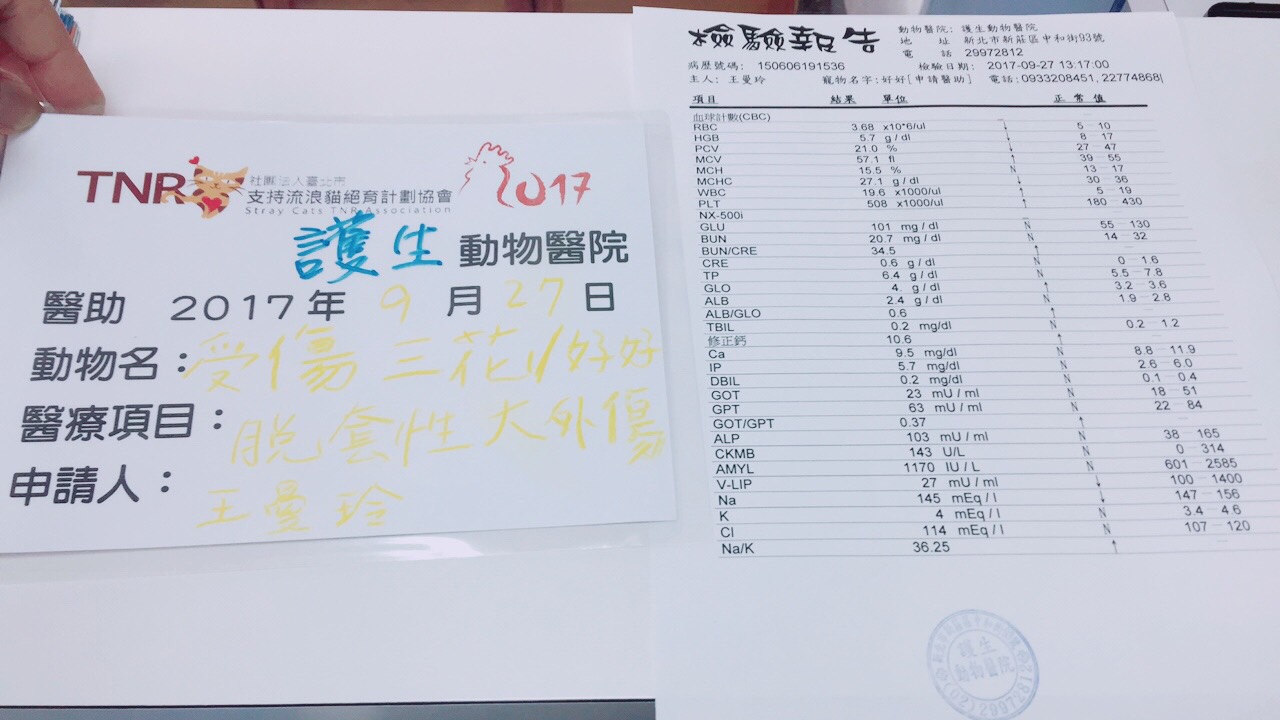 TNR
社團法人臺北市
支持流浪貓絕育計劃協會
Stray Cats TNR Association
2017
護生 動物醫院
醫助 2017年 9 月 27 日
動物名：受傷三花//好好
醫療項目：脫套性大外傷
申請人：王曼玲
檢驗報告
動物醫院: 護生動物醫院
地 址 新北市新莊區中和街93號
電 話 29972812
病歷號碼: 150606191536 檢驗日期: 2017-09-27 13:17:00
主人: 王曼玲 寵物名字:好好[申請醫助] 電話:0933208451, 22774868
項目 結果 單位 正常值
血球計數(CBC)
RBC 3.68 x10*6/ul ↓ 5 - 10
HGB 5.7 g / dl ↓ 8 - 17
PCV 21.0 % ↓ 27 - 47
MCV 57.1 fl ↑ 39 - 55
MCH 15.5 % ↑ 13 - 17
MCHC 27.1 g / dl ↓ 30 - 36
WBC 19.6 x1000/ul ↑ 5 - 19
PLT 508 x1000/ul ↑ 180 - 430
NX-500i
GLU 101 mg / dl N 55 - 130
BUN 20.7 mg / dl N 14 - 32
BUN/CRE 34.5 ↑
CRE 0.6 g / dl N 0 - 1.6
TP 6.4 g / dl N 5.5 - 7.8
GLO 4 g / dl ↑ 3.2 - 3.6
ALB 2.4 g / dl N 1.9 - 2.8
ALB/GLO 0.6 ↑
TBIL 0.2 mg/dl N 0.2 - 1.2
修正鈣 10.6 ↑
Ca 9.5 mg/dl N 8.8 - 11.9
IP 5.7 mg/dl N 2.6 - 6.0
DBIL 0.2 mg/dl N 0.1 - 0.4
GOT 23 mU / ml N 18 - 51
GPT 63 mU / ml N 22 - 84
GOT/GPT 0.37 ↑
ALP 103 mU / ml N 38 - 165
CKMB 143 U/L N 0 - 314
AMYL 1170 IU / L N 601 - 2585
V-LIP 27 mU / ml ↓ 100 - 1400
Na 145 mEq / l ↓ 147 - 156
K 4 mEq / l N 3.4 - 4.6
Cl 114 mEq / l N 107 - 120
Na/K 36.25 ↑
護生
動物醫院